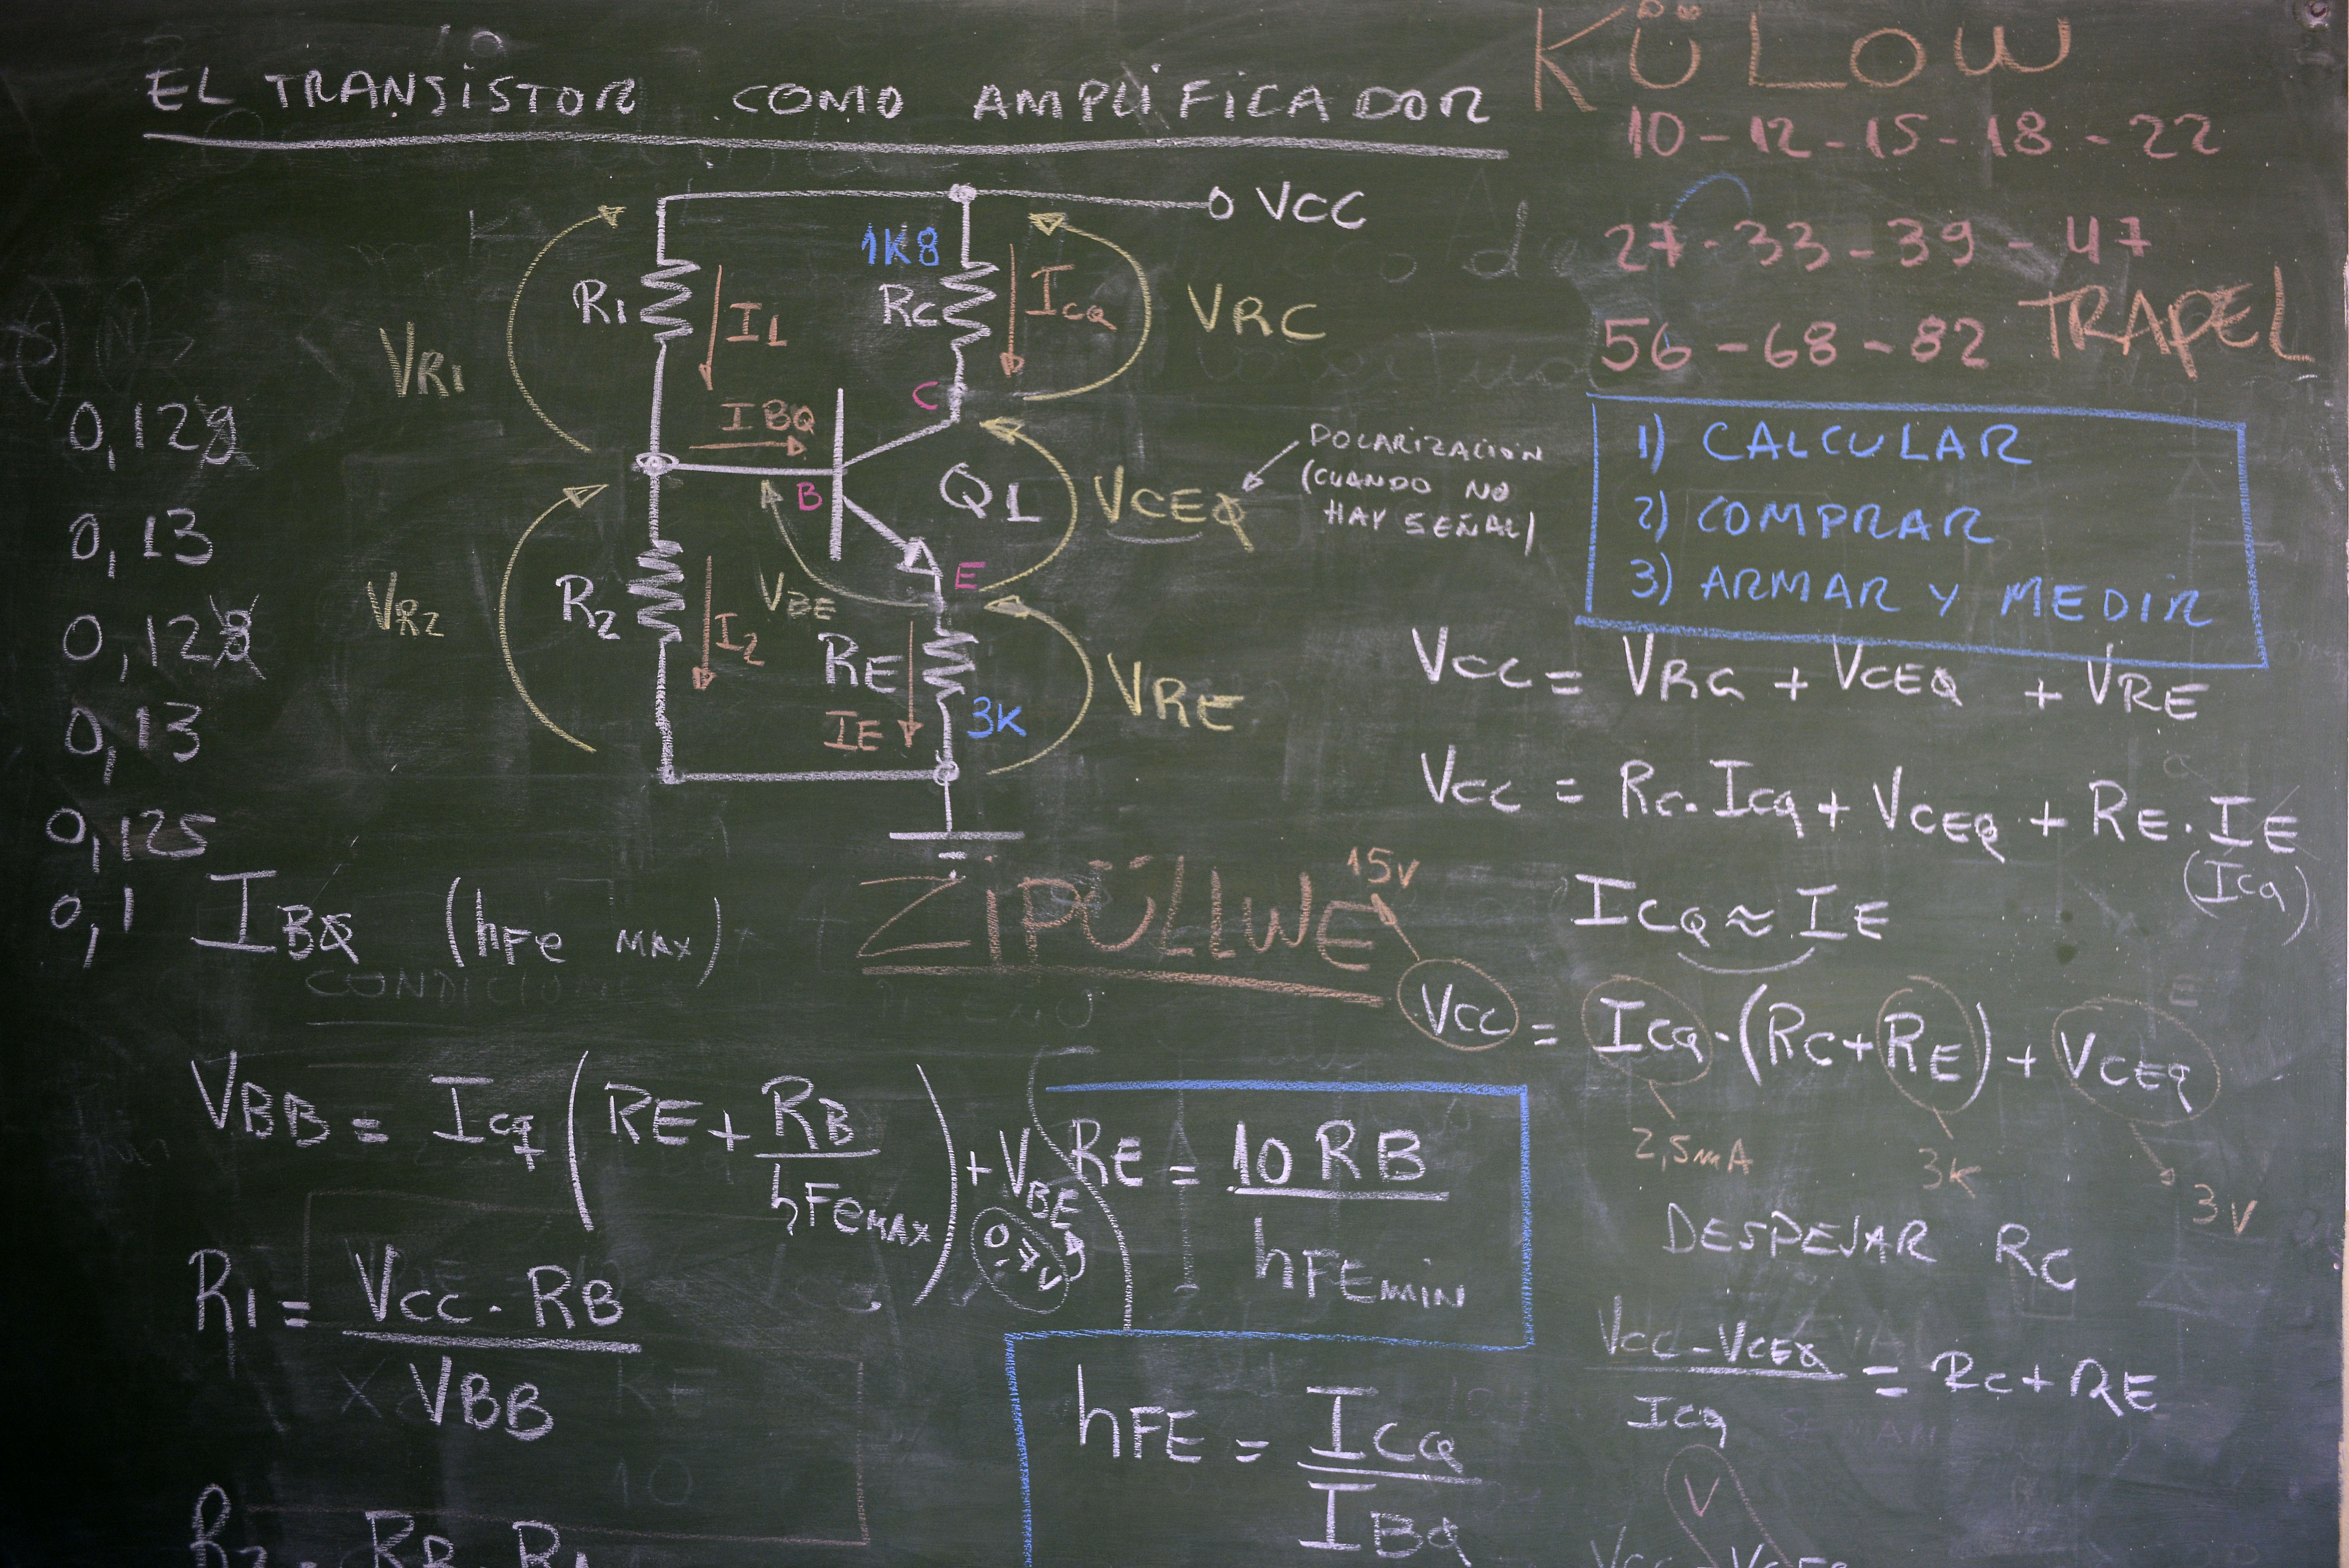 EL TRANSISTOR COMO AMPLIFICADOR
KÜLOW
10 - 12 - 15 - 18 - 22
27 - 33 - 39 - 47
56 - 68 - 82
TRAPEL
VCC
1K8
R1
I1
RC
ICQ
VRC
VR1
IBQ
C
B
Q1
VCEQ
POLARIZACIÓN
(CUANDO NO
HAY SEÑAL)
E
VBE
VR2
R2
I2
RE
IE
3K
VRE
1) CALCULAR
2) COMPRAR
3) ARMAR Y MEDIR
0,13
0,13
0,125
0,1
VCC = VRC + VCEQ + VRE
VCC = RC . ICQ + VCEQ + RE . IE
(ICQ)
ICQ ≈ IE
IBQ (hFe MAX)
ZIPÜLLWE
15V
VCC = ICQ . (RC + RE) + VCEQ
2,5mA
3K
3V
DESPEJAR RC
VCC - VCEQ / ICQ = RC + RE
VBB = ICQ (RE + RB / hFe MAX) + VBE
0,7V
RE = 10 RB / hFE MIN
R1 = VCC . RB / VBB
hFE = ICQ / IBQ